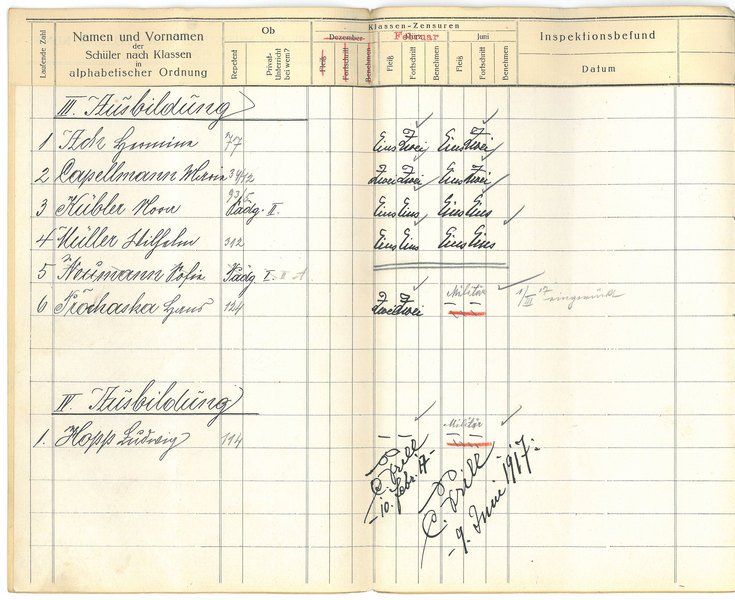 Laufende Zahl
Namen und Vornamen
der
Schüler nach Klassen
in
alphabetischer Ordnung
Ob
Repetent
Privat-Unterricht bei wem?
Klassen-Zensuren
Dezember
Februar
Juni
Fleiß Fortschritt Benehmen Fleiß Fortschritt Benehmen Fleiß Fortschritt Benehmen
Inspektionsbefund
Datum
III. Ausbildung
1 Hermine 77 Eins Zwei Eins Zwei
2 Capellmann Maria Zwei Zwei Eins Zwei
3 Kübler Pädg. II. Eins Eins Eins Eins
4 Müller Wilhelm 312 Eins Eins Eins Eins
5 Neumann Sofie Pädg. I.
6 Prochaska Hans 124 Zwei Zwei Militär 1/III 17 eingerückt
IV. Ausbildung
1. Hopp Ludwig 114 — — Militär
C. Prill
- 10. Febr. 17 -
C. Prill
- 9. Juni 1917.